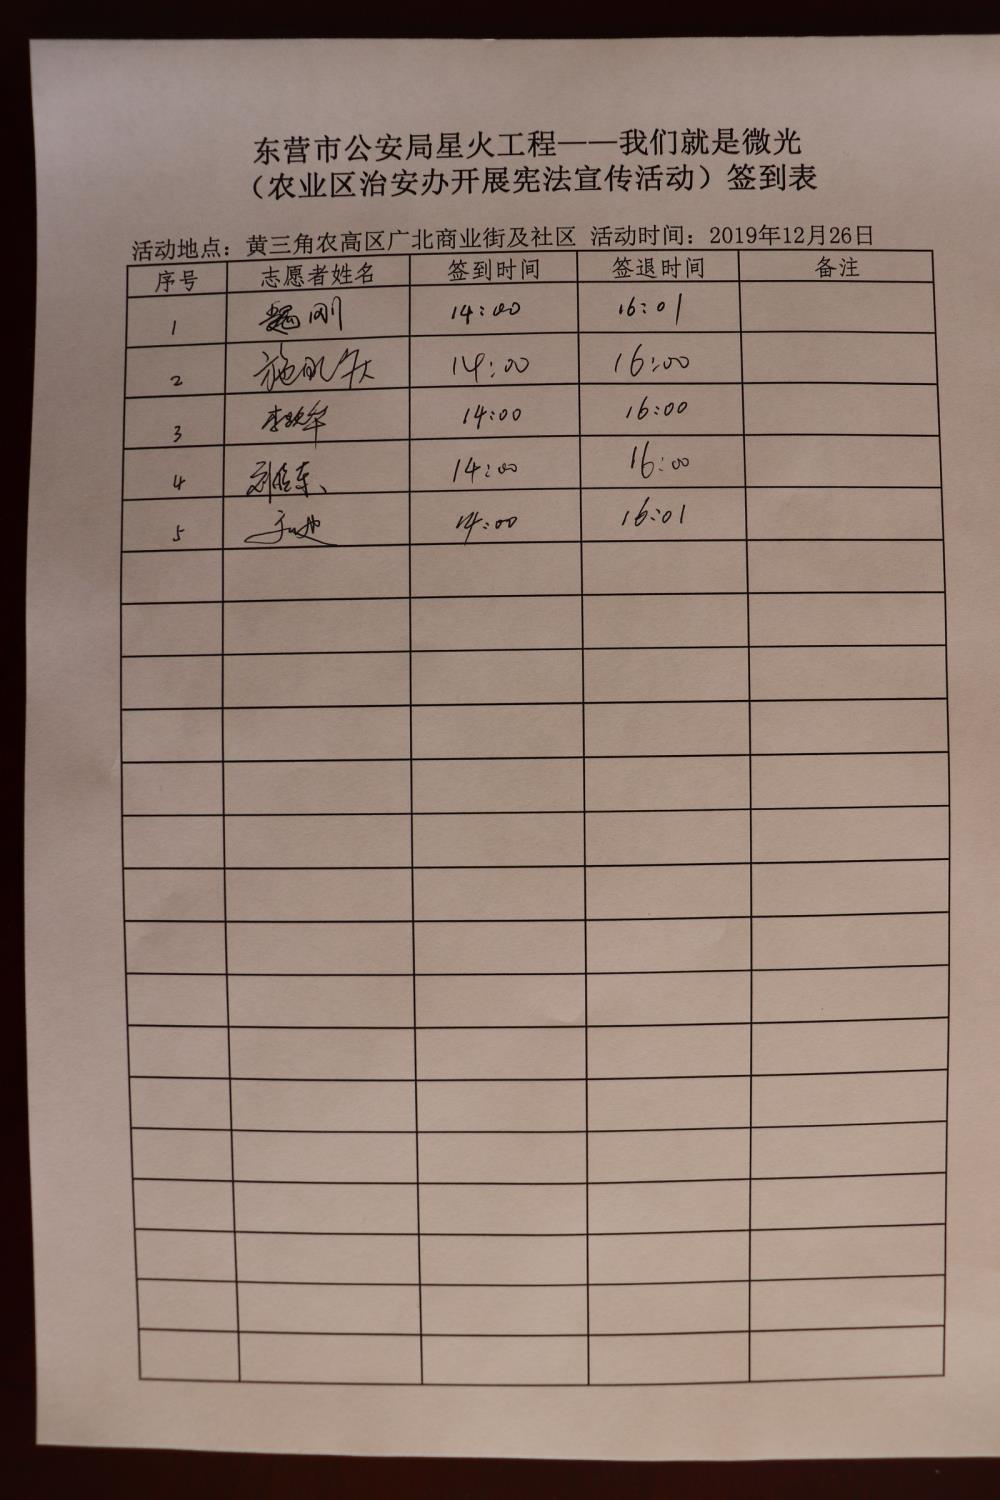 东营市公安局星火工程——我们就是微光
（农业区治安办开展宪法宣传活动）签到表
活动地点：黄三角农高区广北商业街及社区 活动时间：2019年12月26日
序号 志愿者姓名 签到时间 签退时间 备注
1 魏刚 14:00 16:01
2 14:00 16:00
3 14:00 16:00
4 14:00 16:00
5 14:00 16:01